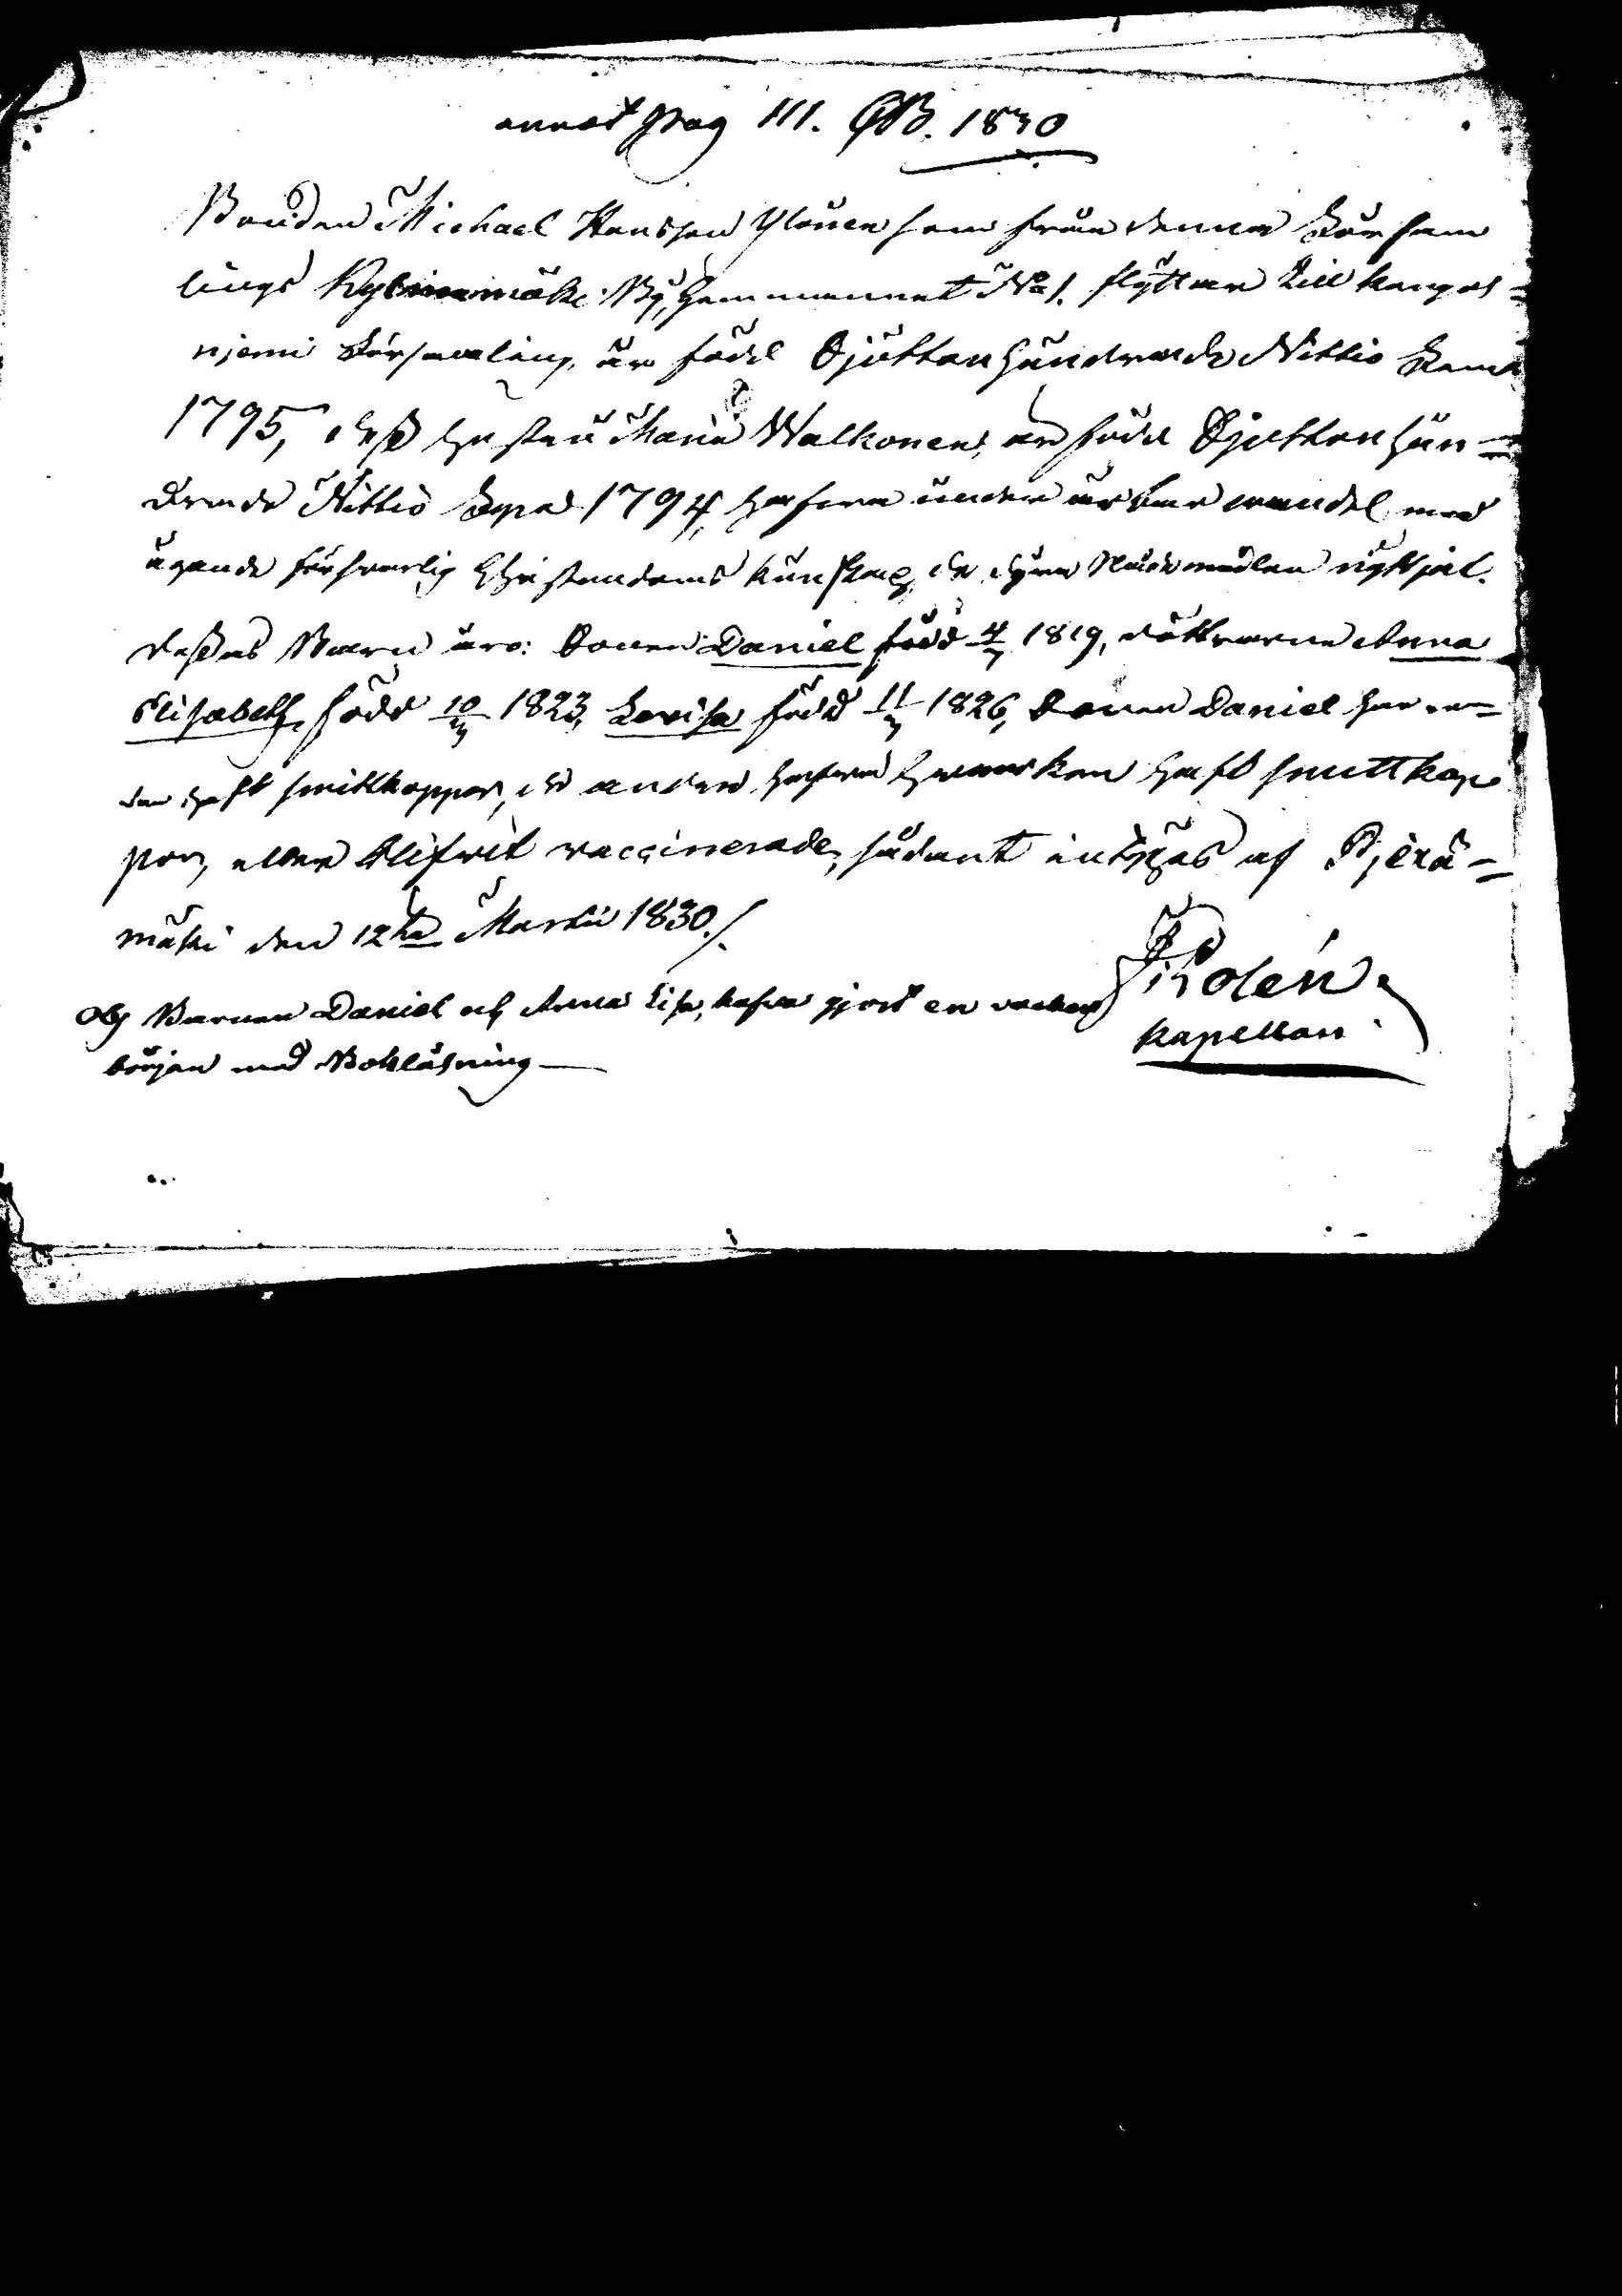 annot Pag 111. CB. 1830
Bonden Michael Hansson Ylönen som från denna Försam
lings mäki By, Hemmannet No 1. flyttar till Kangas=
njemi Församling, är född Sjuttonhundrade Nittio Fem
1795, dess hustru Maria Walkonen, är född Sjuttonhun=
drade Nittio Fyra 1794, hafva under ärbar vandel, med
ägande försvarlig Christendoms kunskap, de dyra Nådemedlen nyttjat.
Dessas Barn äro: Sonen Daniel född 4/7 1819, döttrarne Anna
Elisabeth, född 10/3 1823, Lovisa född 11/3 1826, Sonen Daniel har re=
dan haft smittkoppor, de andra hafva hvarken haft smittkop
por, eller blifvit vaccinerade, sådant intygas af Pjexä=
mäki den 12te Martii 1830./.
Molén.
Kapellan
Obs Barnen Daniel och Anna Lisa, hafva gjort en vacker
början med Bokläsning